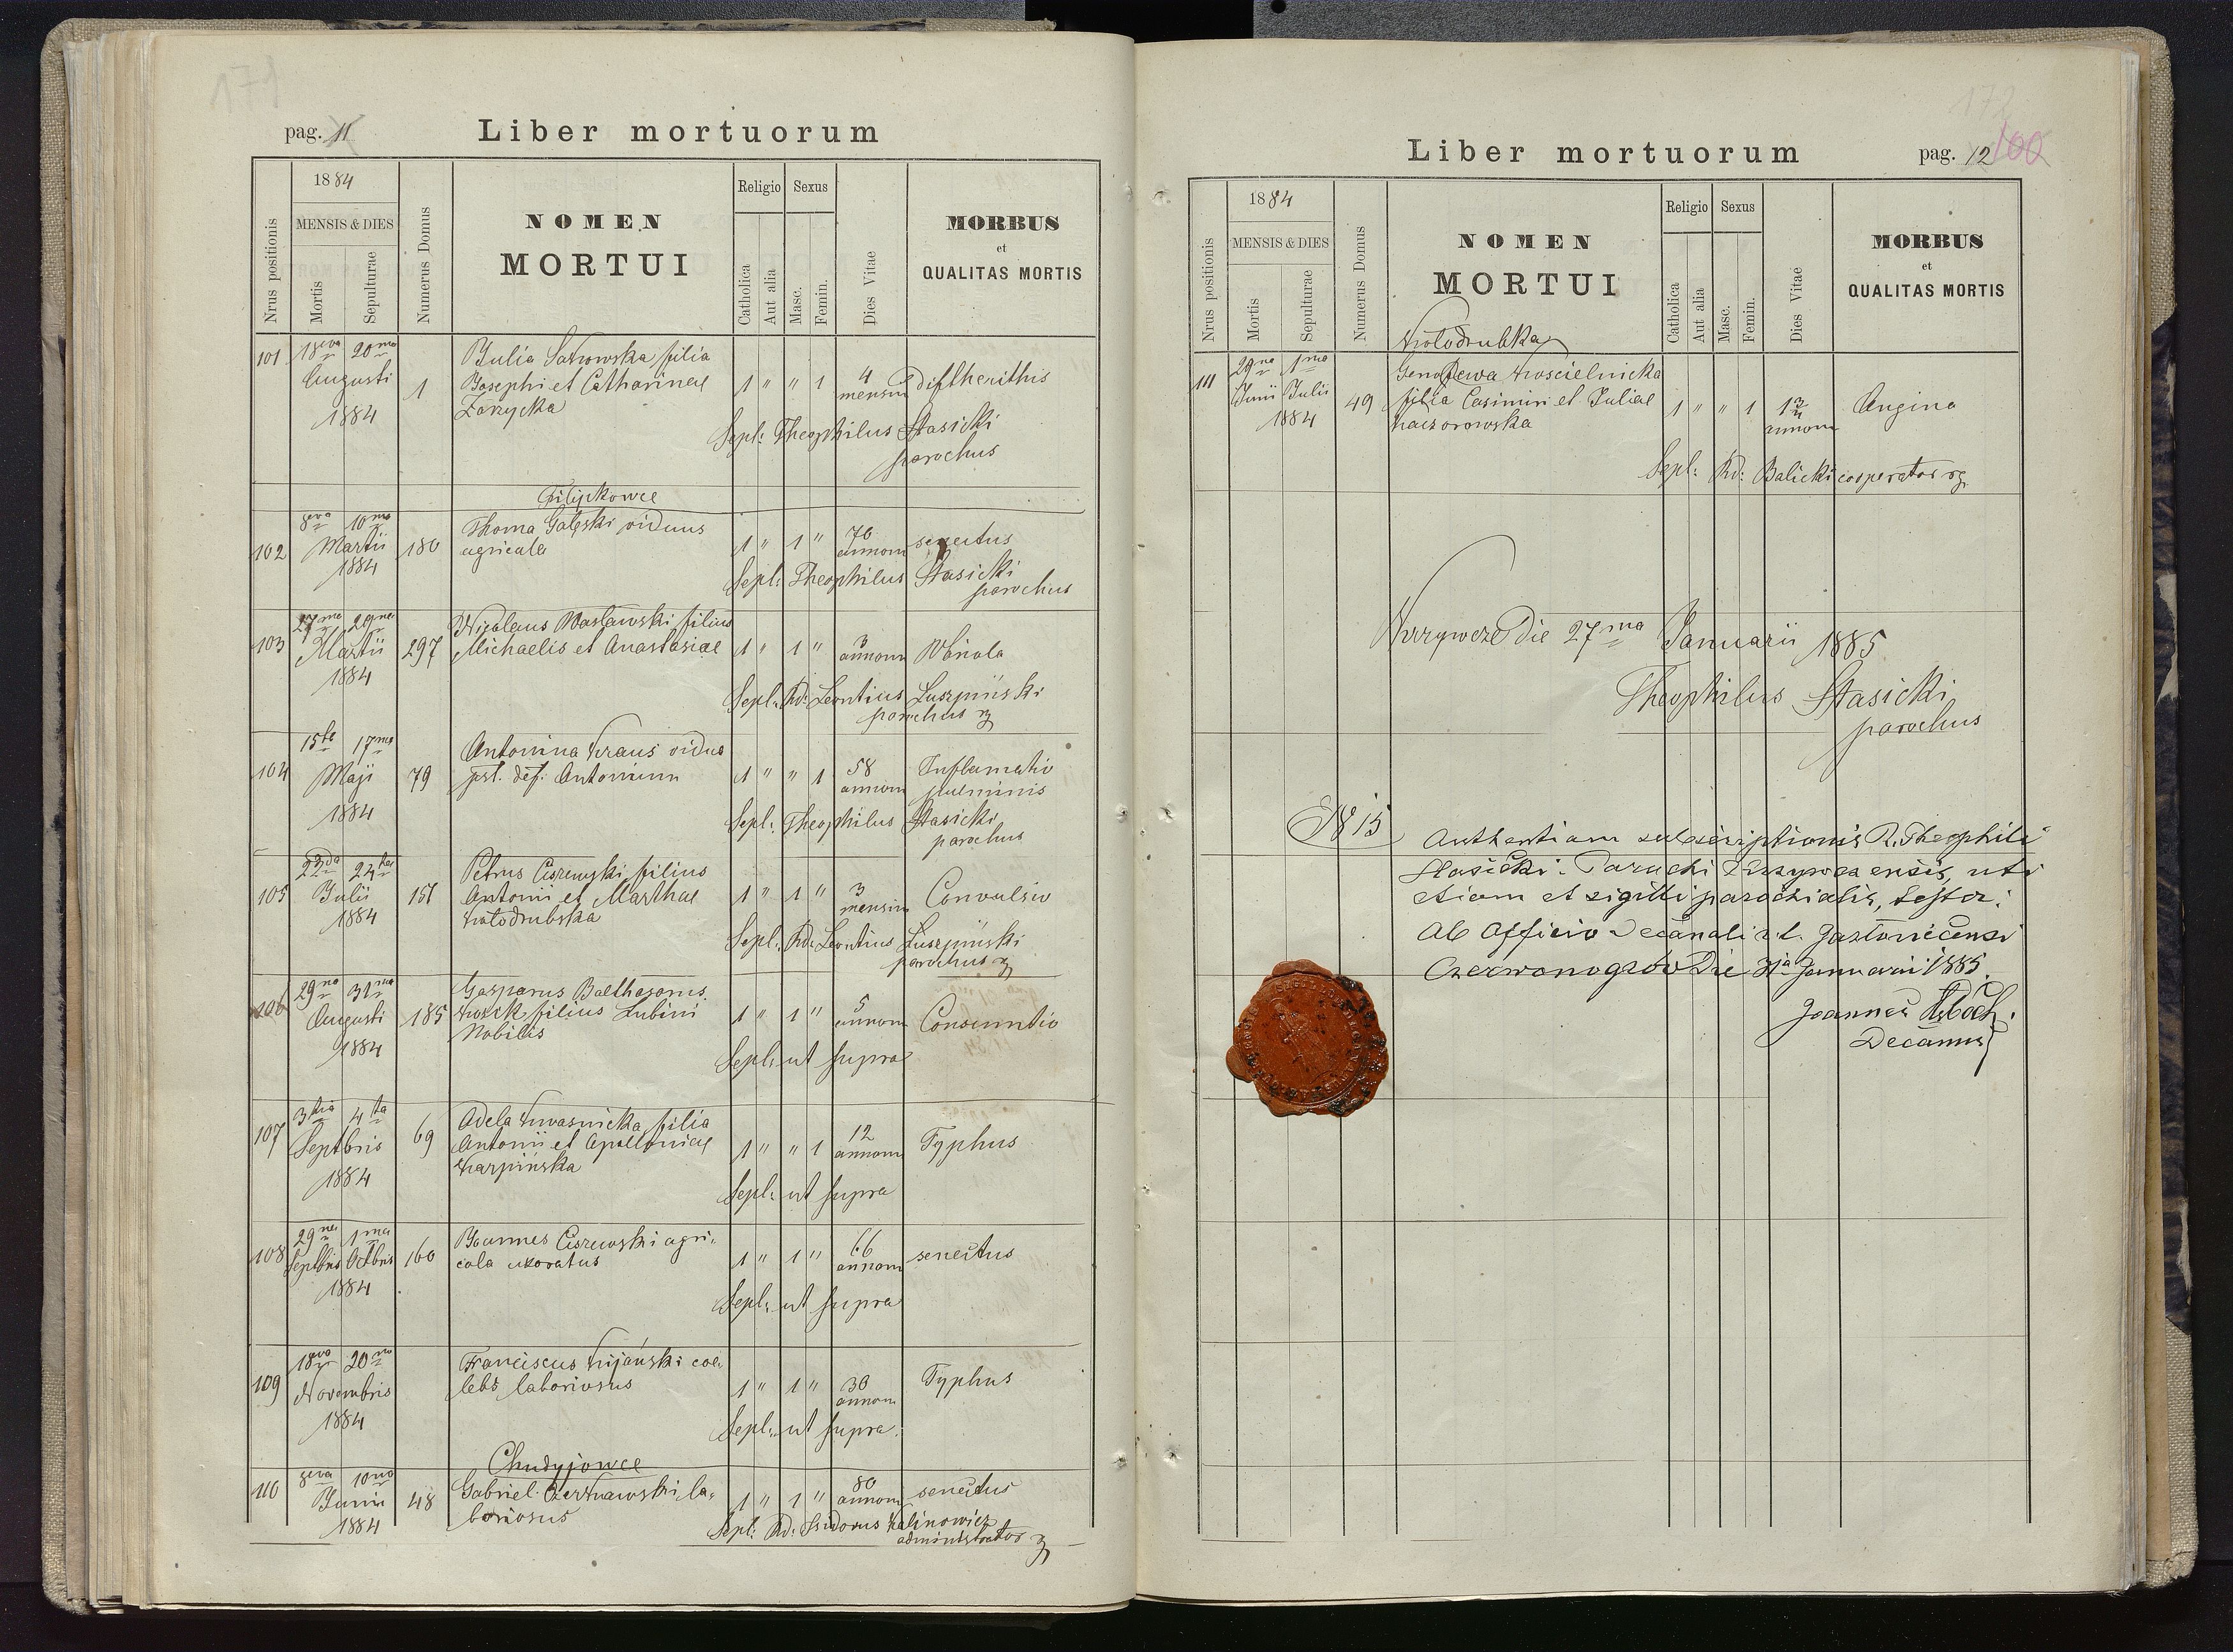 171
pag. 11
Liber mortuorum
Nrus positionis
1884
MENSIS & DIES
Mortis
Sepulturae
Numerus Domus
NOMEN
MORTUI
Religio
Catholica
Aut alia
Sexus
Masc.
Femin.
Dies Vitae
MORBUS
et
QUALITAS MORTIS
101 18eva 20ma Julia filia
Augusti 1 Josephi et Catharinae 1 " " 1 4 mensium diftherithis
1884 Zarzycka
Sepl: Theophilus Stasicki
parochus
Filipkowce
102 8eva 10ma Thoma Gałęski viduus
Martii 180 agricola 1 " 1 " 70 annorum senectus
1884
Sepl: Theophilus Stasicki
parochus
103 27ma 29na Nicolaus Wasławski filius
Martii 297 Michaelis et Anastasiae 1 " 1 " 3 annorum
1884
Sepl: Rd: Leontius Luszpiński
parochus
104 15ta 17ma Antonina Kraus vidua
Maji 79 pst. def. Antonium 1 " " 1 58 annorum Inflamatio
1884 pulminis
Sepl: Theophilus Stasicki
parochus
105 22da 24ta Petrus filius
Julii 151 Antonii et Marthae 1 " 1 " 3 mensium Convulsio
1884 Hołodrubska
Sepl: Rd: Leontius Luszpiński
parochus
106 29na 31ma Gasparus Balthasarus
Augusti 185 filius Lubini 1 " 1 " 5 annorum Consumtio
1884 Nobilis
Sepl: ut supra
107 3tia 4ta Adela Kwasnicka filia
Septbris 69 Antonii et Apolloniae 1 " " 1 12 annorum Typhus
1884 Karpińska
Sepl: ut supra
108 29na 1ma Joannes Ciszewski agri-
Septbris Octbris 160 cola uxoratus 1 " 1 " 66 annorum senectus
1884
Sepl: ut supra
109 18eva 20ma Franciscus Kijański coe-
Novembris lebs laboriosus 1 " 1 " 30 annorum Typhus
1884
Sepl: ut supra.
Chudyjowce
110 8eva 10ma Gabriel la-
Junii 48 boriosus 1 " 1 " 80 annorum senectus
1884
Sepl: Rd: Isidorus Kalinowicz
administrator
172
100
Liber mortuorum
pag. 12
Nrus positionis
1884
MENSIS & DIES
Mortis
Sepulturae
Numerus Domus
NOMEN
MORTUI
Religio
Catholica
Aut alia
Sexus
Masc.
Femin.
Dies Vitae
MORBUS
et
QUALITAS MORTIS
Kołodrubka
111 29na 1ma Genofewa Koscielnicka
Junii Julii 49 filia Casimiri et Juliae 1 " " 1 annorum Angina
1884 Kaczorowska
Sepl: Rd: Balicki cooperator
Krzywcze Die 27ma Januarii 1885
Theophilus Stasicki
parochus
N 15
Authentiam subscriptionis R. Theophili
Stasicki Parochi Krzywczensis, uti
etiam et sigilli parochialis, testor.
Ab Officio Decanali r.l. Jazłovicensi
Czerwonogród Die 31a Januarii 1885.
Joannes
Decanus